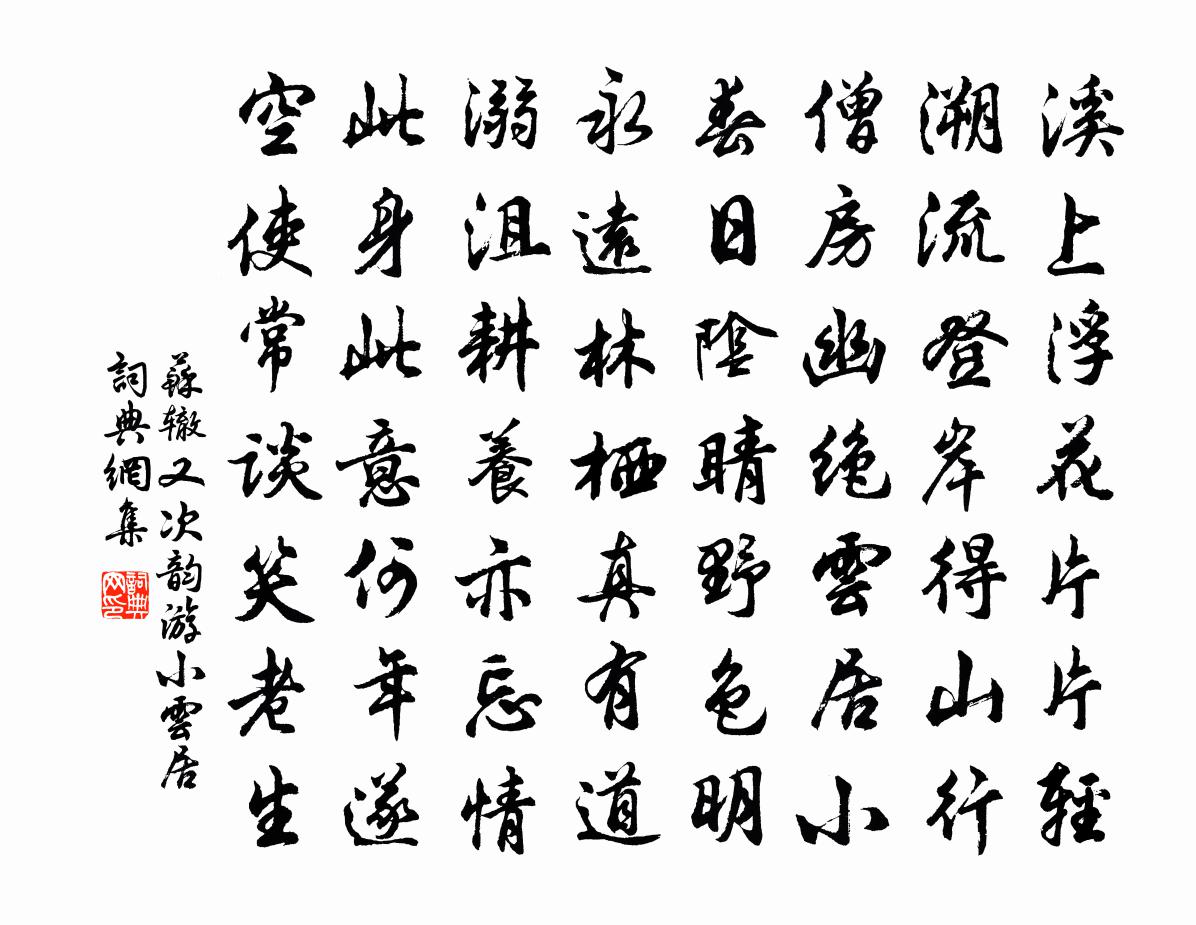 溪上浮花片片輕
溯流登岸得山行
僧房幽绝雲居小
春日陰晴野色明
永遠林栖真有道
溺沮耕養亦忘情
此身此意何年遂
空使常談笑老生
蘇辙又次韵游小雲居
詞典網集
詞典
网印